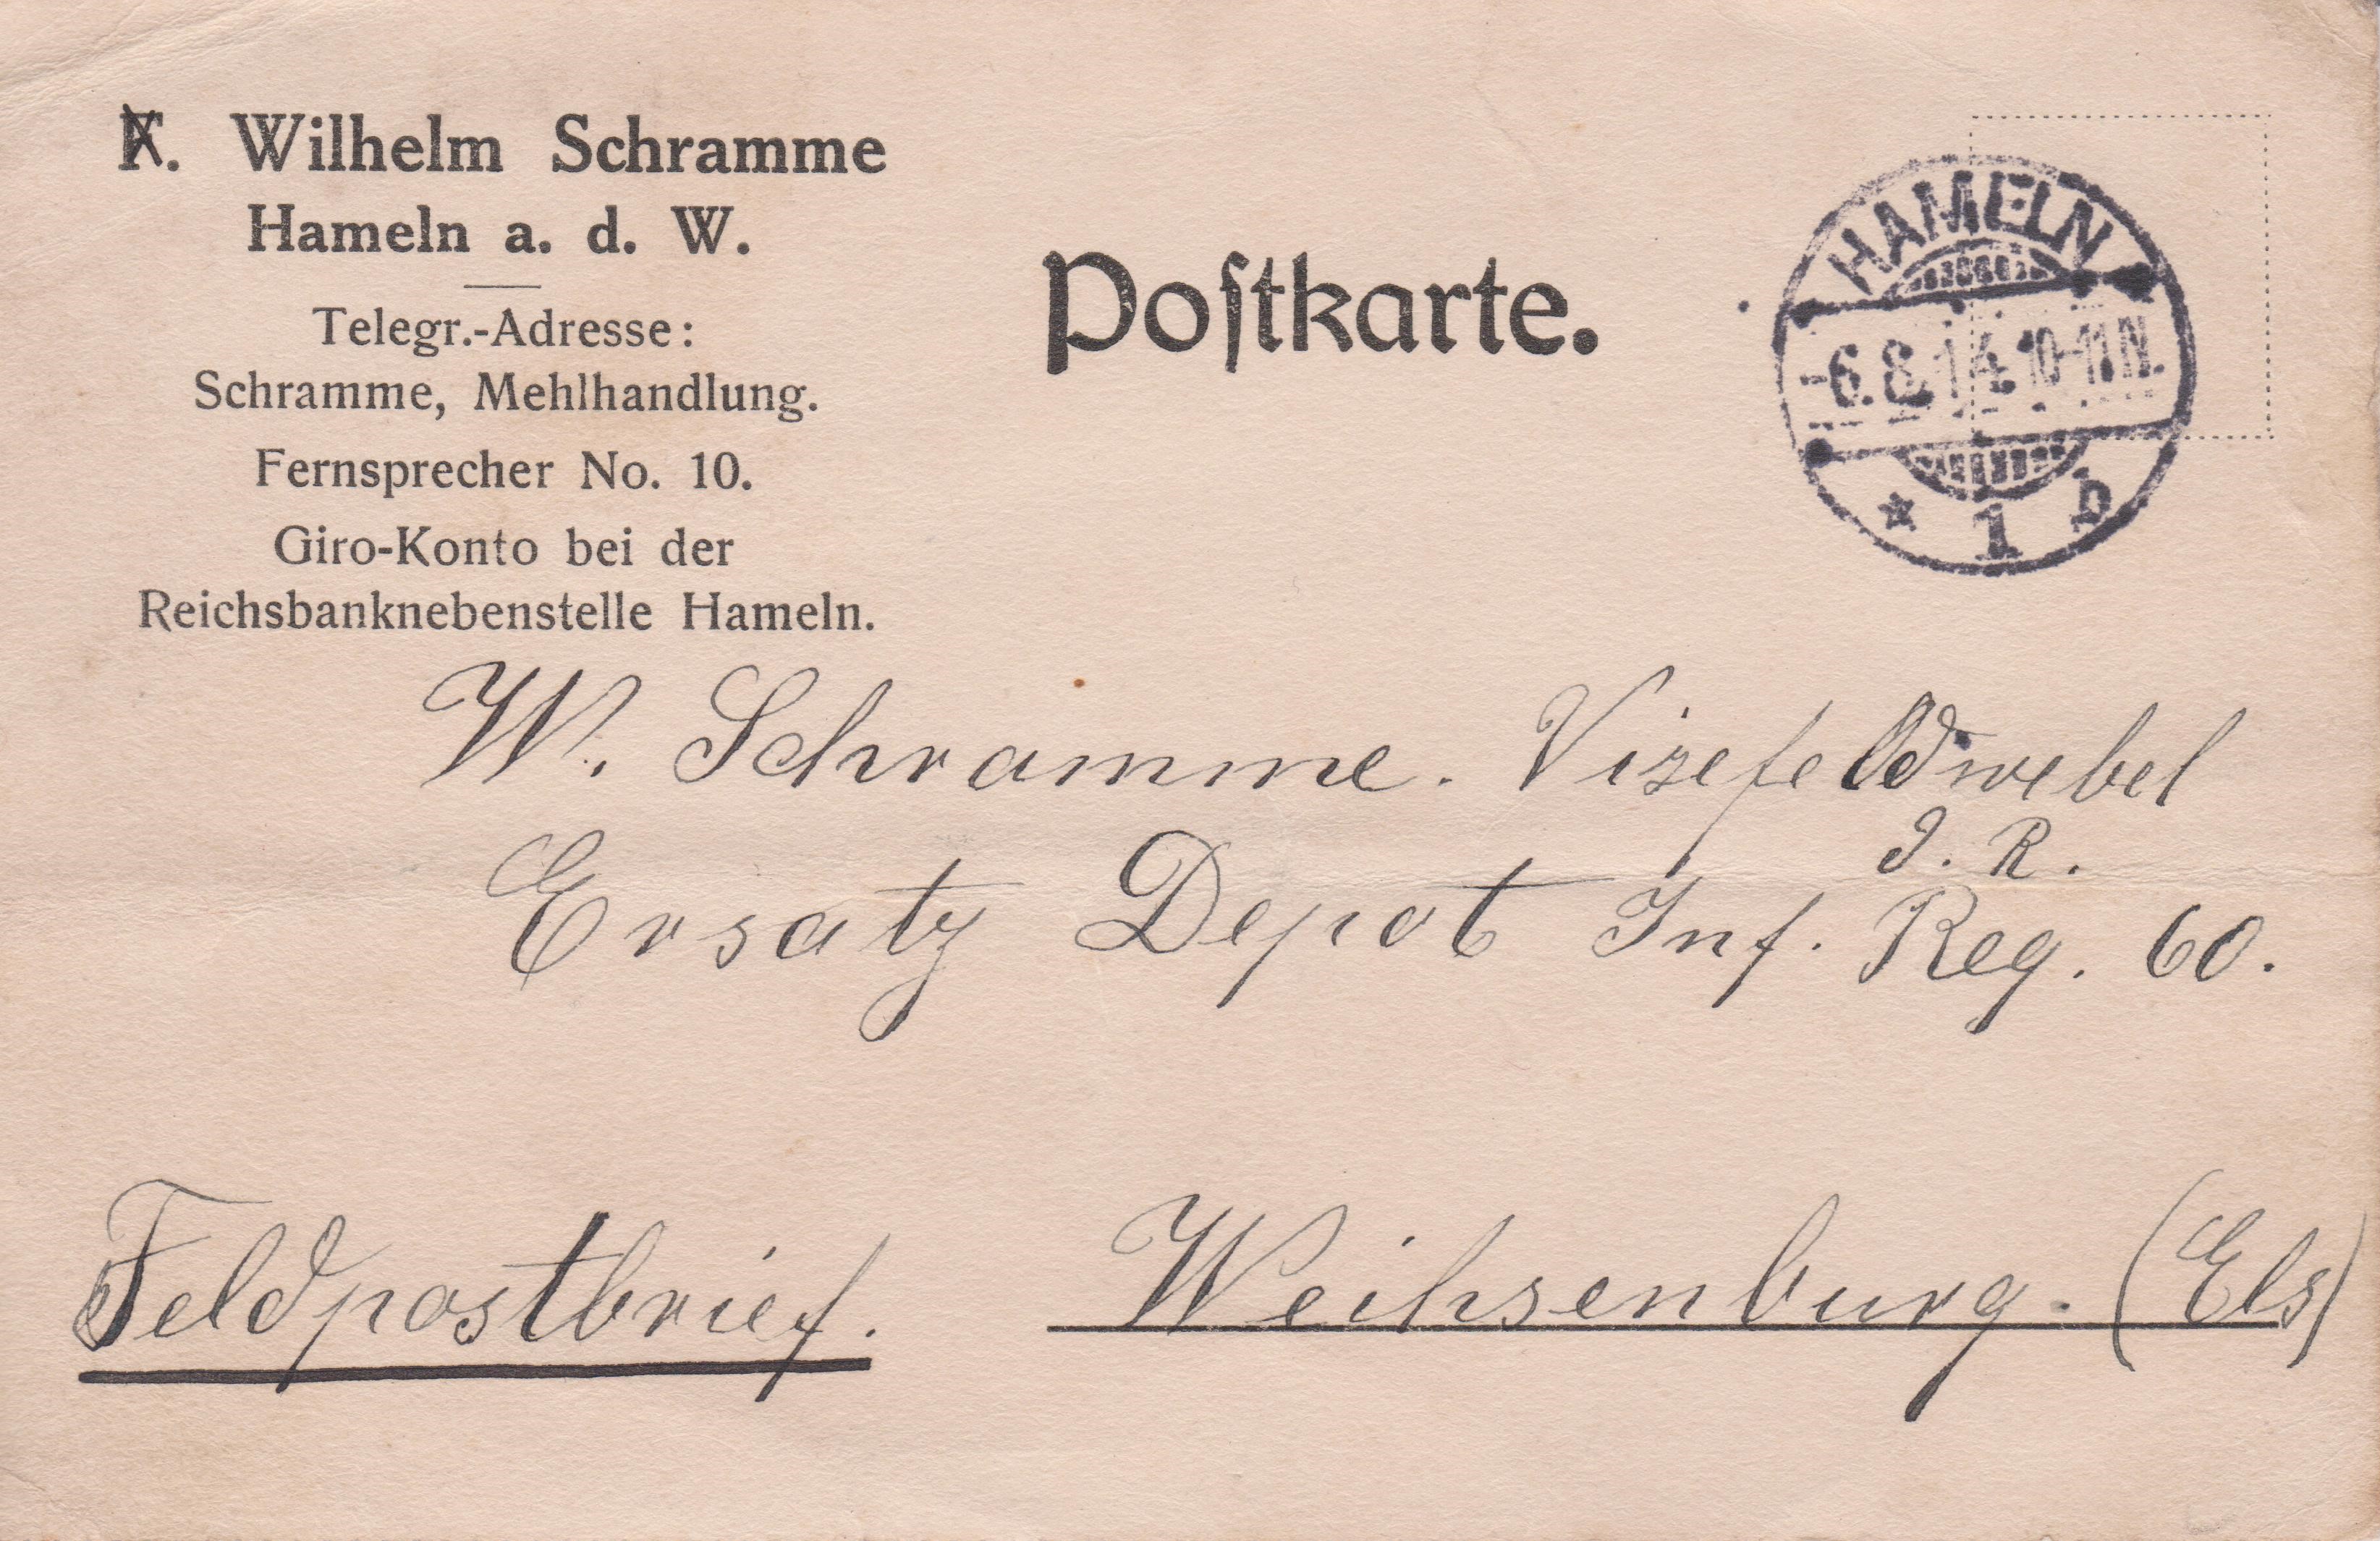 F. Wilhelm Schramme
Hameln a. d. W.
Telegr.-Adresse:
Schramme, Mehlhandlung.
Fernsprecher No. 10.
Giro-Konto bei der
Reichsbanknebenstelle Hameln.
Poſtkarte.
HAMELN
-6.8.14. 10-11 N.
* 1 b
W. Schramme. Vizefeldwebel
d. R.
Ersatz Depot Inf. Reg. 60.
Feldpostbrief.
Weihsenburg. (Els)